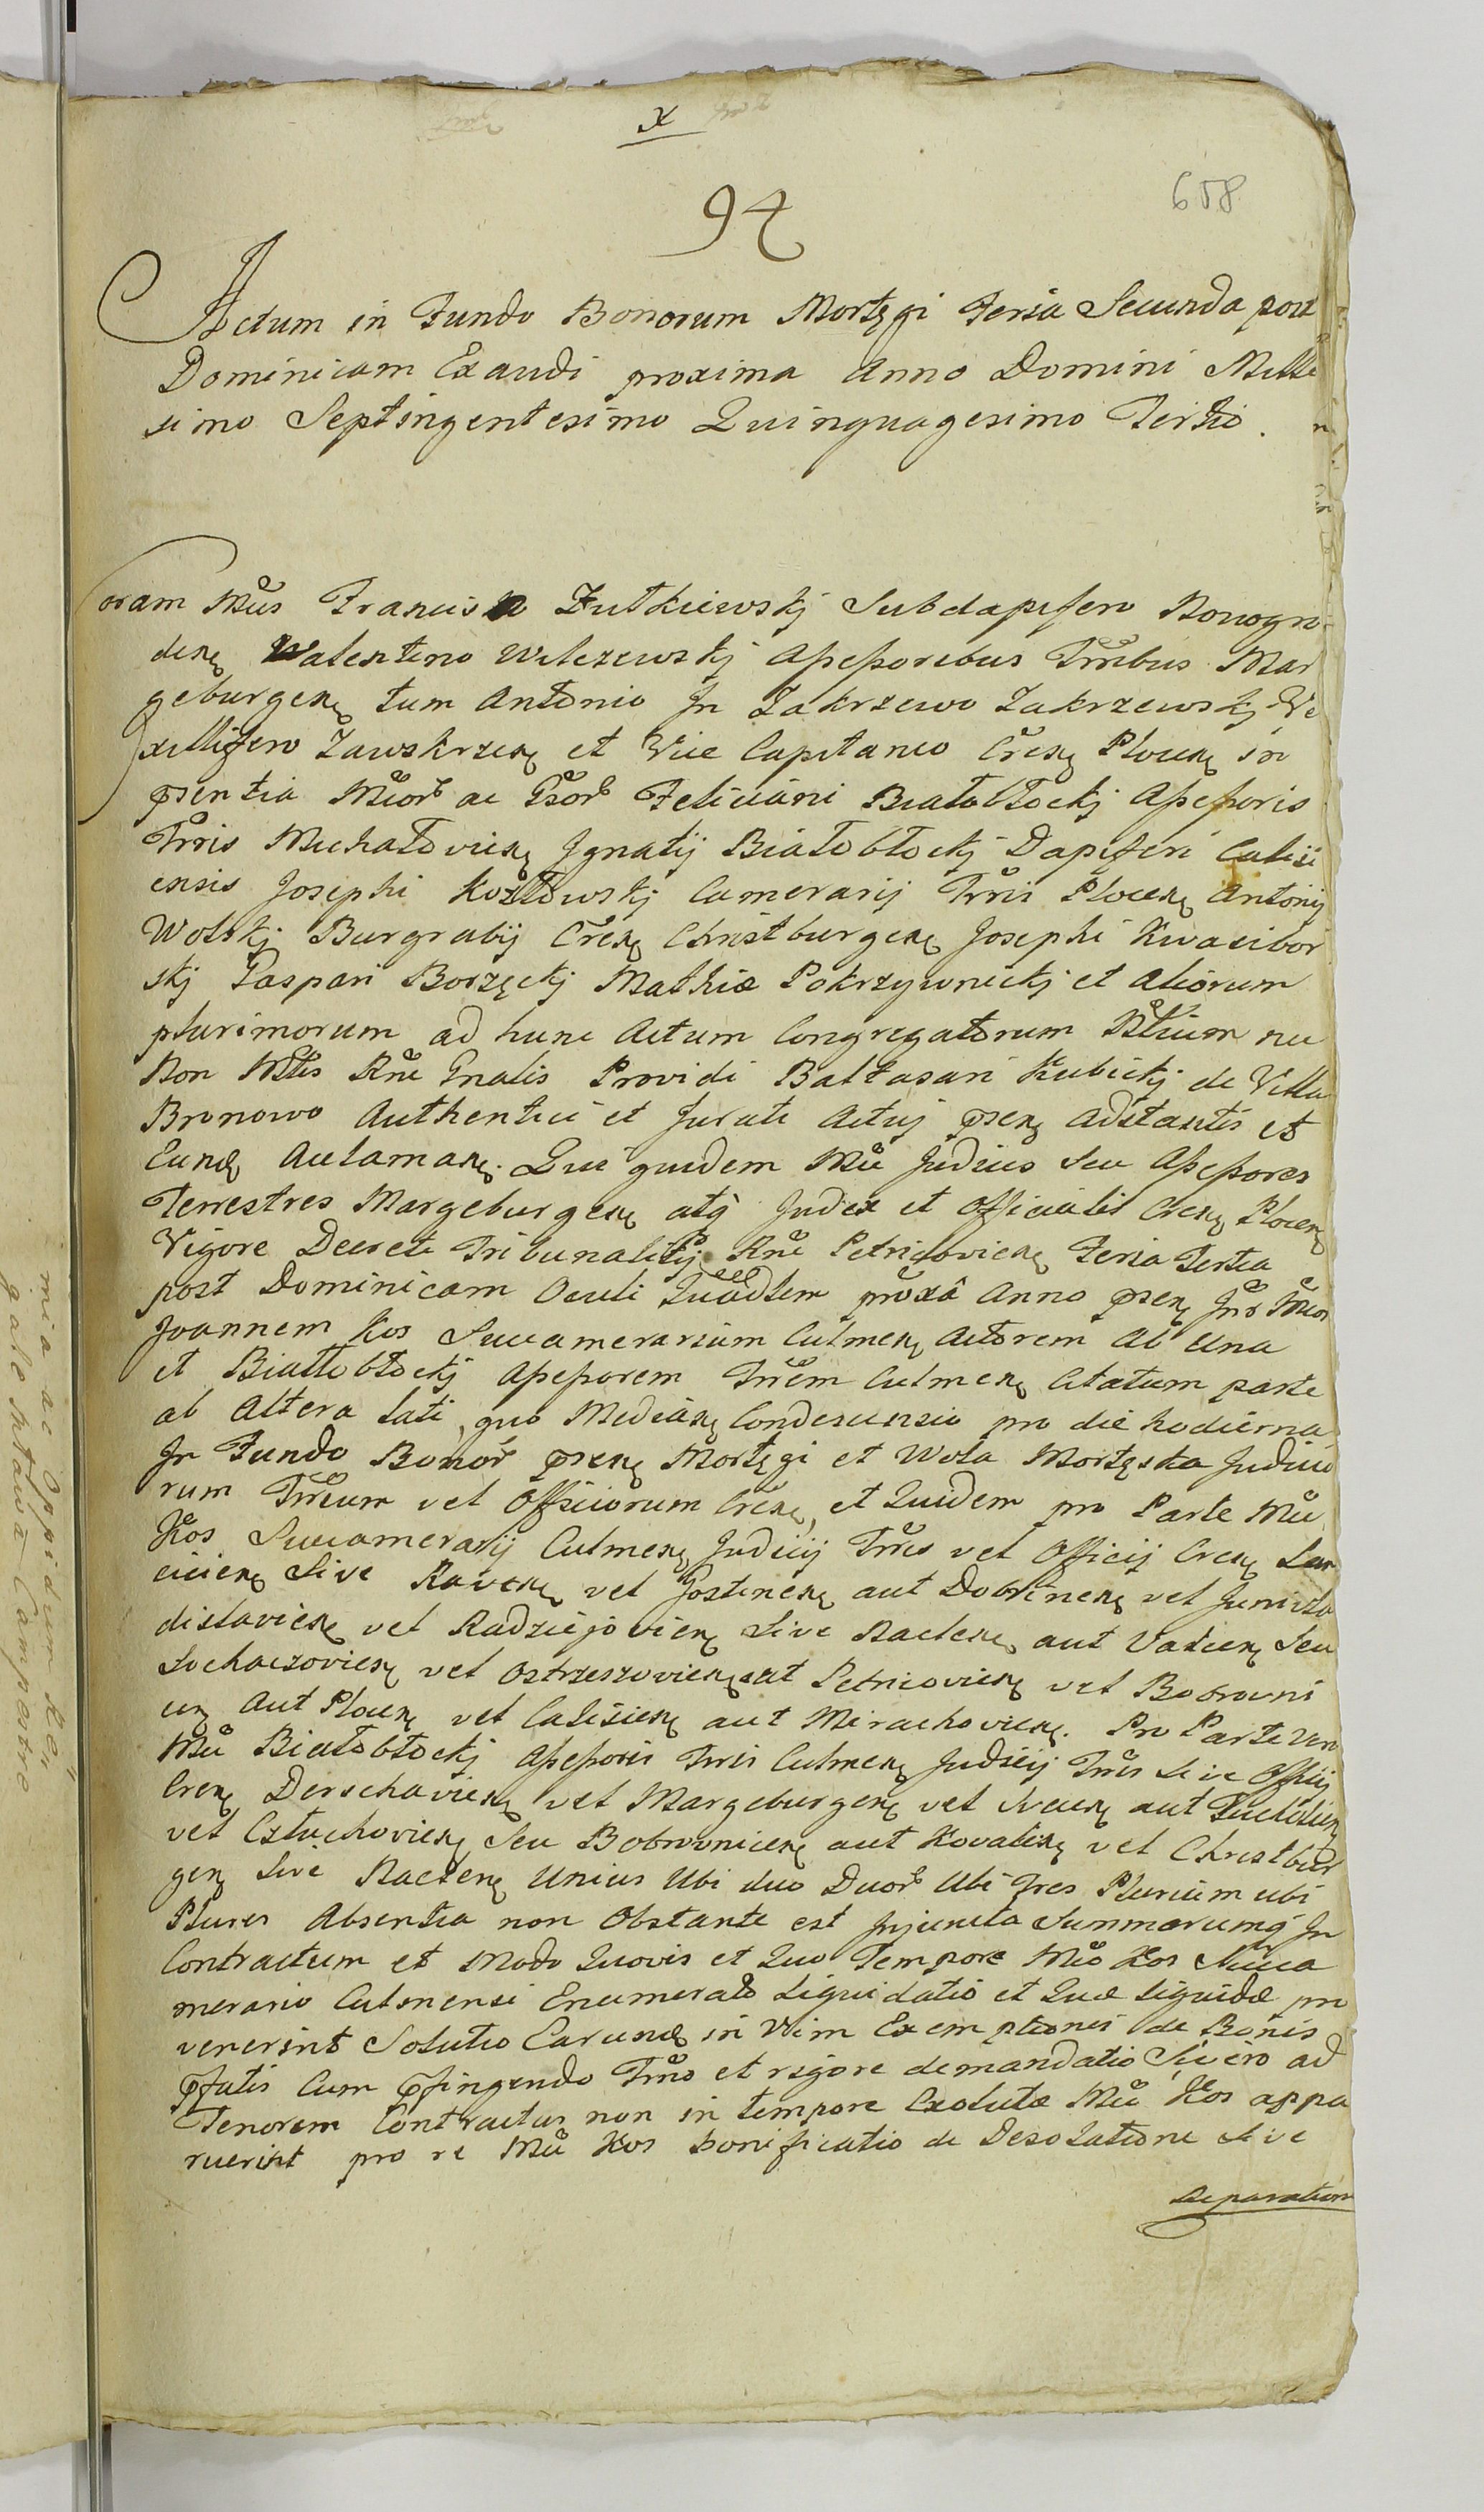 x
94
658
Actum in Fundo Bonorum Mortęgi Feria Secunda post
Dominicam Exaudi proxima Anno Domini Mille
simo Septingentesimo Quinquagesimo Tertio.
Coram Mcis Francis Zutkiewskj Subdapifero Novogro
den Walentino Wilczewskj Assessoribus Trribus Mar
geburgen tum Antonio In Zakrzewo Zakrzewskj Ve
xillifero Zawskrzen et Vice Capitaneo Cren Plocen in
psentia Mcorb ac Gsorb Feliciani Białobłockj Assessoris
Trris Michałovien Ignatij Białobłockj Dapiferi Calisi
ensis Josephi Kozłowskj Camerarij Trris Plocen Antonij
Wolskj Burgrabij Cren Christburgen Josephi Kwasibor
skj Gaspari Borzęckj Mathiæ Pokrzywnickj et Aliorum
plurimorum ad hunc Actum Congregatorum Nlium nec
Non Mtis Rne Gnalis Providi Baltasari Kubickj de Villa
Bronowo Authentici et Jurati Actuj psen Adstantis et
Eund Aclaman. Qui quidem Mci Judices Seu Assessores
Terrestres Margeburgen atq Judex et Officialis Cren Plocen
Vigore Decreti Tribunalitij Rne Petricovien Feria Tertia
post Dominicam Oculi Quadlem proxâ Anno psen Inr Mcos
Joannem Kos Succamerarium Culmen Actorem Ab Una
et Białłobłockj Assessorem Trrem Culmen Citatum parte
ab Altera Lati, quo Median Condescensio pro die hodierna
In Fundo Bonor psen Mortęgi et Wola Mortęska Judicio
rum Trrium vel Officiorum Cren, et Quidem pro Parte Mci
Kos Succamerarij Culmen Judicij Trris vel Officij Cren Lan
cicien Sive Raven vel Gostinen aut Dobrinen vel Junivla
dislavien vel Radziejovien Sive Naclen aut Valcen Seu
Sochaczovien vel Ostrzeszovien aut Petricovien vel Bobrovni
cen Aut Plocen vel Calisien aut Mirachovien. Pro Parte Vero
Mci Białobłockj Assessoris Trris Culmen Judicij Trris Sive Officij
Cren Derschavien vel Margeburgen vel Svecen aut Tucholien
vel Człuchovien Seu Bobrovnicen aut Kovalien vel Christbur
gen Sive Naclen Unius Ubi duo Duorb Ubi Tres Plurium ubi
Plures Absentia non Obstante est Injuncta Summarumq In
Contractum et Modo Quovis et Quo Tempore Mco Kos Succa
merario Culmensi Enumerato Liquidatio et Quæ liquidæ pro
venerint Solutio Earund in Vim Exemptionis de Bonis
pfatis Cum pfingendo Trmo et rigore demandatio Si vero ad
Tenorem Contractus non in tempore Exolutæ Mci Kos appa
ruerint pro re Mci Kos bonificatio de Desolatione Sive
Separation